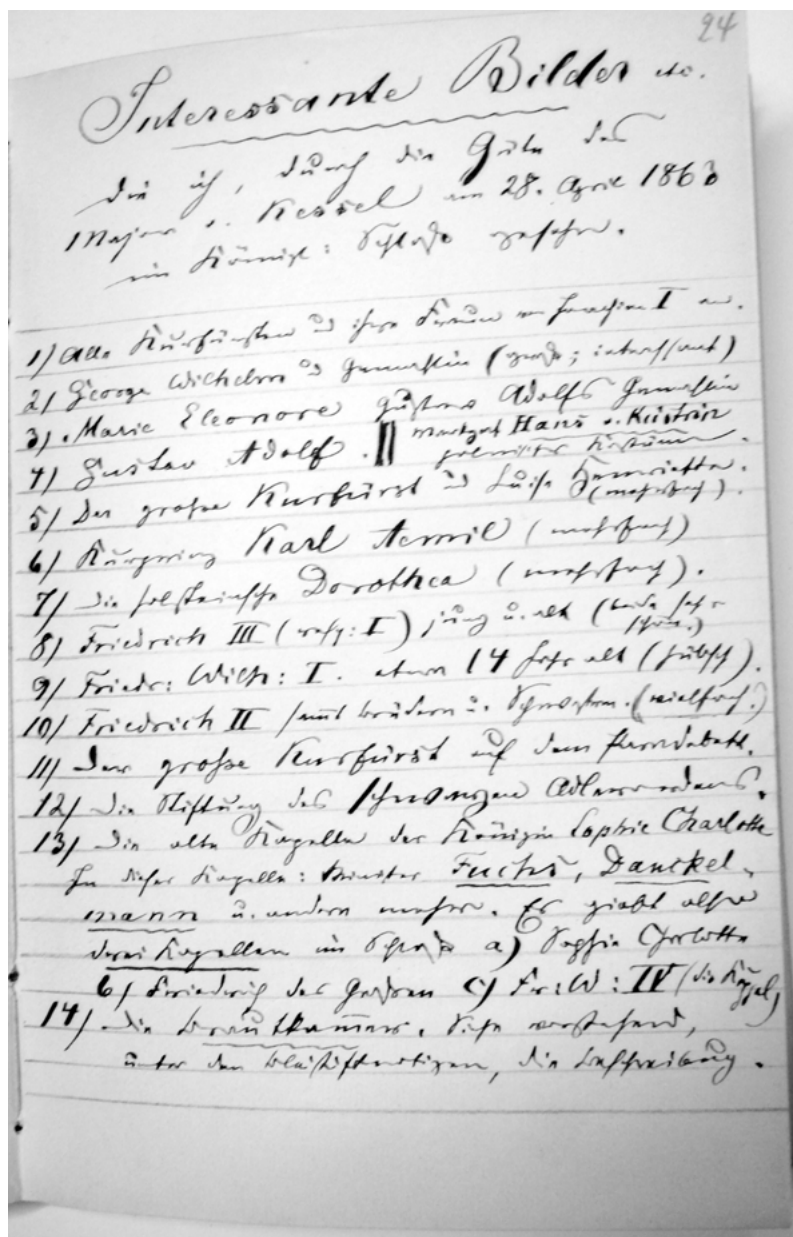 24
Interessante Bilder etc.
die ich, durch die Güte des
Major v. Kessel am 28. April 1863
im Königl: Schloße gesehn.
1) Alle Kurfürsten u ihre Frauen von Joachim I an.
2) George Wilhelm u Gemahlin (groß; interessant)
3) Marie Eleonore Gustav Adolfs Gemahlin
4) Gustav Adolf. || Markgraf Hans v. Küstrin
polnisches Kostüm.
5) Der große Kurfürst u Luise Henriette.
(mehrfach).
6) Kurprinz Karl Aemil (mehrfach)
7) Die holsteinsche Dorothea (mehrfach).
8) Friedrich III (resp: I) jung u. alt (beide sehr
schön.)
9) Friedr: Wilh: I. etwa 14 Jahr alt (hübsch).
10) Friedrich II samt Brüdern u. Schwestern. (vielfach.)
11) Der große Kurfürst auf dem Paradebett.
12) Die Stiftung des schwarzen Adlerordens.
13) Die alte Kapelle der Königin Sophie Charlotte
In dieser Kapelle: Minister Fuchs, Danckel-
mann u. andere mehr. Es giebt also
drei Kapellen im Schloß a) Sophie Charlotte
b) Friedrich des Großen c) Fr: W: IV (die Kuppel)
14) Die Brautkammer. Siehe vorstehend,
unter den Bleistiftnotizen, die Beschreibung.